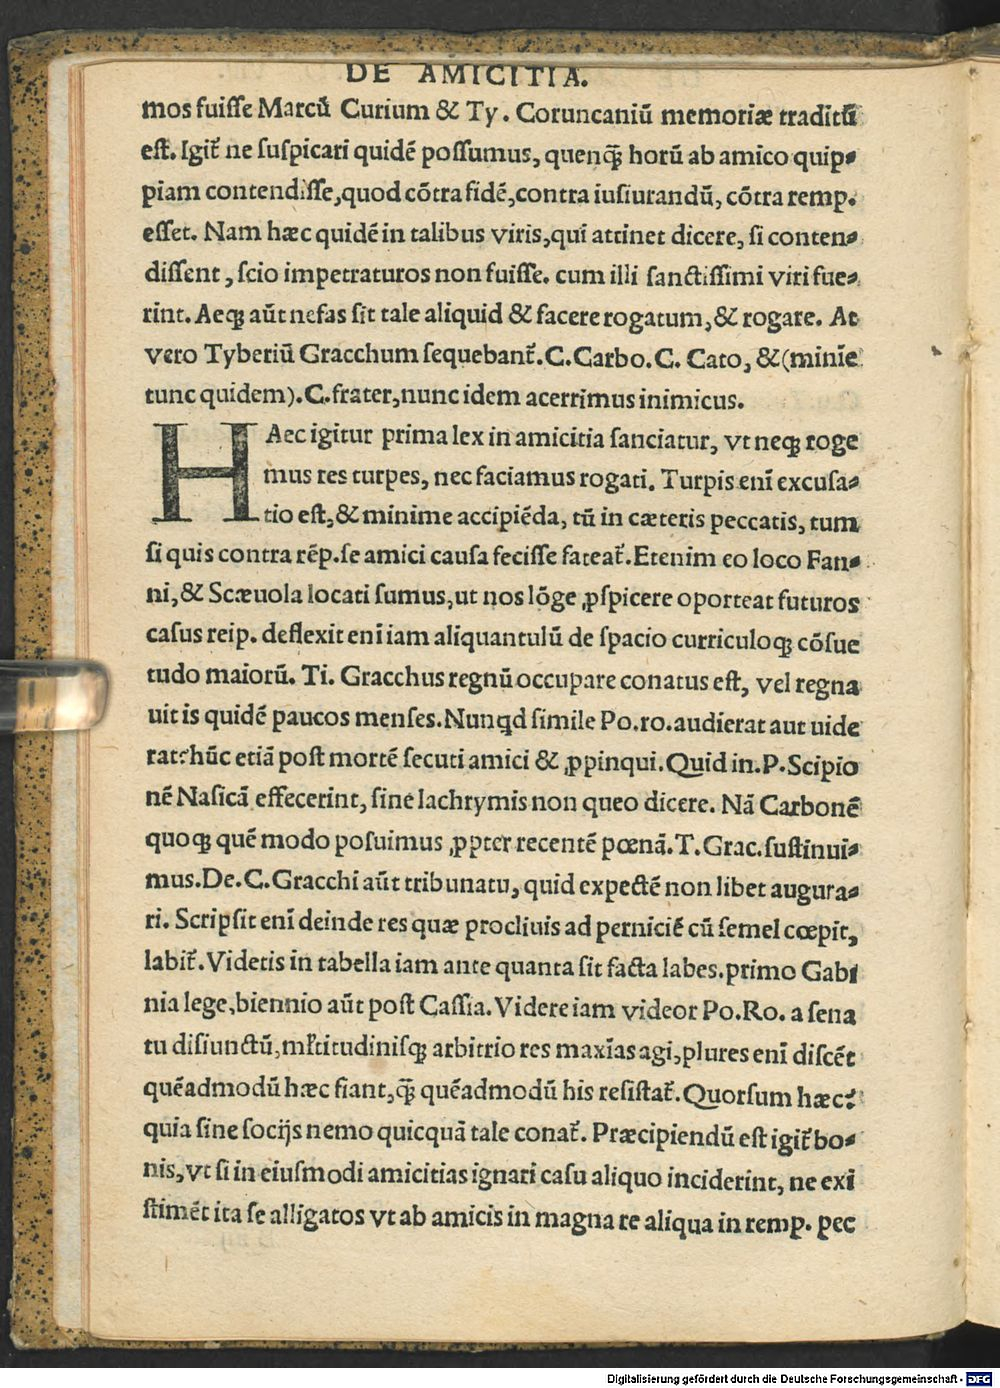 DE AMICITIA.
mos fuiſſe Marcū Curium & Ty. Coruncaniū memoriæ traditū
eſt. Igit̃ ne ſuſpicari quidē poſſumus, quenq̃ horū ab amico quip⸗
piam contendiſſe, quod cōtra fidē, contra iuſiurandū, cōtra remp.
eſſet. Nam hæc quidē in talibus viris, qui attinet dicere, ſi conten⸗
diſſent, ſcio impetraturos non fuiſſe. cum illi ſanctiſſimi viri fue⸗
rint. Aeqꝫ aūt nefas ſit tale aliquid & facere rogatum, & rogare. At
vero Tyberiū Gracchum ſequebant̃. C. Carbo. C. Cato, & (minīe
tunc quidem). C. frater, nunc idem acerrimus inimicus.
HAec igitur prima lex in amicitia ſanciatur, vt neqꝫ roge
mus res turpes, nec faciamus rogati. Turpis enī excuſa⸗
tio eſt, & minime accipiēda, tū in cæteris peccatis, tum
ſi quis contra rēp. ſe amici cauſa feciſſe fateat̃. Etenim eo loco Fan⸗
ni, & Scæuola locati ſumus, ut nos lōge ꝓſpicere oporteat futuros
caſus reip. deflexit enī iam aliquantulū de ſpacio curriculoqꝫ cōſue
tudo maiorū. Ti. Gracchus regnū occupare conatus eſt, vel regna
uit is quidē paucos menſes. Nunqd ſimile Po. ro. audierat aut uide
rat? hūc etiā poſt mortē ſecuti amici & ꝓpinqui. Quid in. P. Scipio
nē Naſicā effecerint, ſine lachrymis non queo dicere. Nā Carbonē
quoqꝫ quē modo poſuimus ꝓpter recentē pœnā. T. Grac. ſuſtinui⸗
mus. De. C. Gracchi aūt tribunatu, quid expectē non libet augura⸗
ri. Scripſit enī deinde res quæ procliuis ad perniciē cū ſemel cœpit,
labit̃. Videtis in tabella iam ante quanta ſit facta labes. primo Gabi
nia lege, biennio aūt poſt Caſſia. Videre iam videor Po. Ro. a ſena
tu diſiunctū, ml̃titudiniſqꝫ arbitrio res maxīas agi, plures enī diſcēt
quēadmodū hæc fiant, q̃ quēadmodū his reſiſtat̃. Quorſum hæc?
quia ſine ſocijs nemo quicquā tale conat̃. Præcipiendū eſt igit̃ bo⸗
nis, vt ſi in eiuſmodi amicitias ignari caſu aliquo inciderint, ne exi
ſtimēt ita ſe alligatos vt ab amicis in magna re aliqua in remp. pec
Digitalisierung gefördert durch die Deutsche Forschungsgemeinschaft - DFG